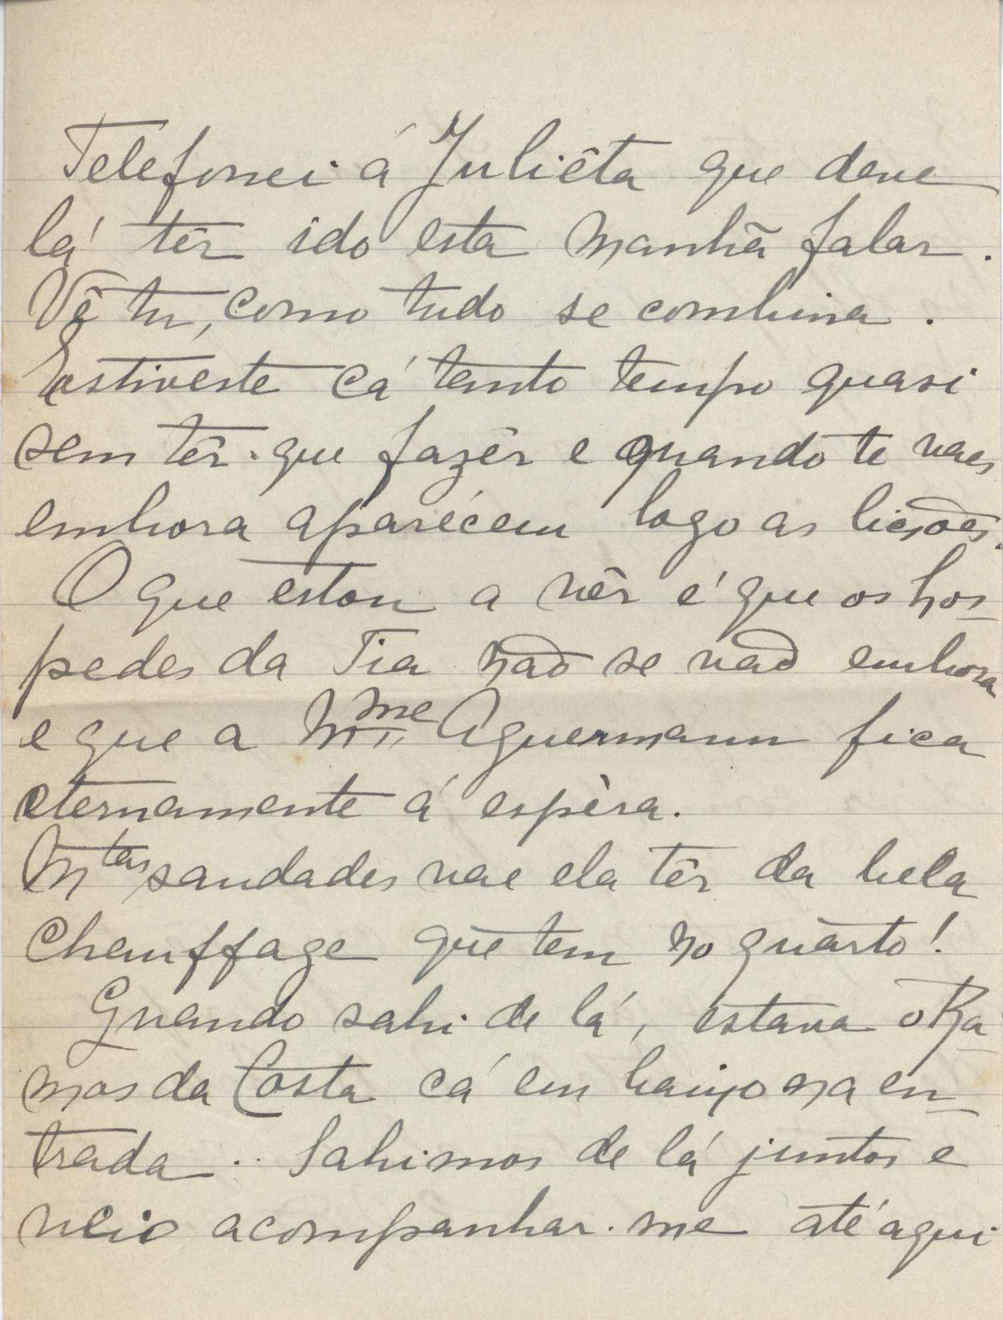 Telefonei á Juliêta que deve
lá têr ido esta manhã falar.
Vê tu, como tudo se combina.
Estiveste cá tanto tempo quasi
sem têr que fazêr e quando te vaes
embora aparécem logo as lições.
O que estou a vêr é que os hos-
pedes da Tia não se vão embora
e que a Mme Aguermann fica
eternamente á espèra.
Mtas saudades vae ela têr da bela
Chauffage que tem no quarto!
Quando sahi de lá, estava o Ra-
mos da Costa cá em baixo na en-
trada.. Sahimos de lá juntos e
veio acompanhar-me até aqui